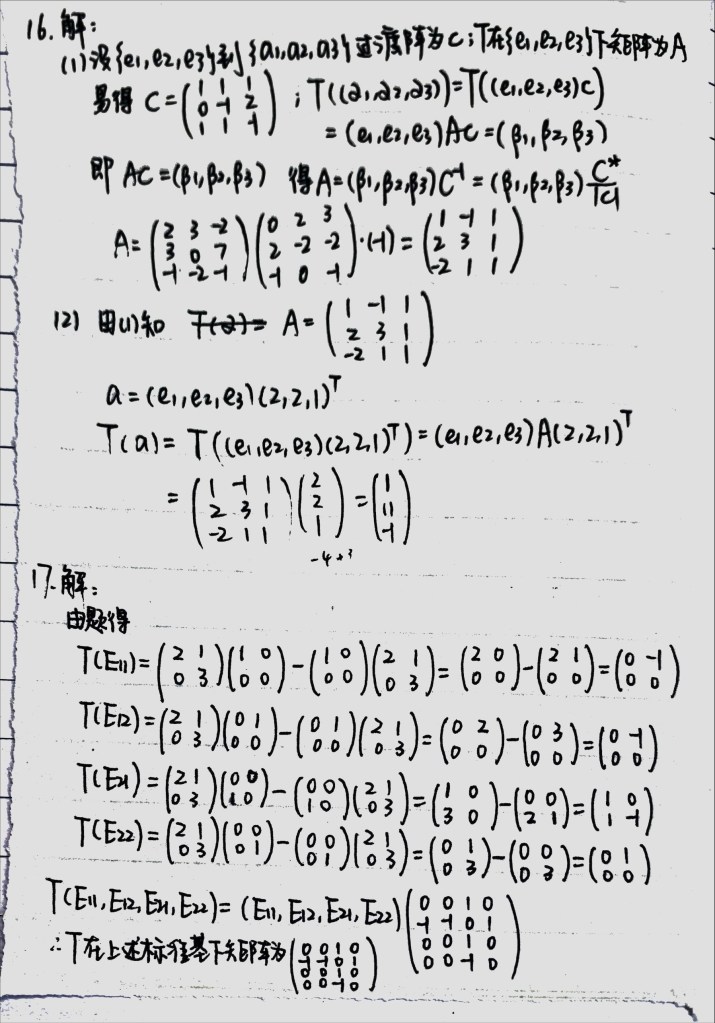 16. 解:
(1)设{e1,e2,e3}到{a1,a2,a3}过渡阵为C;T在{e1,e2,e3}下矩阵为A
易得 C=(1 1 1; 0 -1 2; 1 1 -1) ; T((α1,α2,α3))=T((e1,e2,e3)C)
=(e1,e2,e3)AC=(β1,β2,β3)
即 AC=(β1,β2,β3) 得A=(β1,β2,β3)C⁻¹=(β1,β2,β3)C*/|C|
A=(2 3 -2; 3 0 7; -1 -2 -1)(0 2 3; 2 -2 -2; -1 0 -1)·(-1)=(1 -1 1; 2 3 1; -2 1 1)
(2) 由(1)知 T(α)= A=(1 -1 1; 2 3 1; -2 1 1)
a=(e1,e2,e3)(2,2,1)ᵀ
T(a)= T((e1,e2,e3)(2,2,1)ᵀ)=(e1,e2,e3)A(2,2,1)ᵀ
=(1 -1 1; 2 3 1; -2 1 1)(2; 2; 1)=(1; 11; -1)
-4+3
17.解:
由题得
T(E11)=(2 1; 0 3)(1 0; 0 0)-(1 0; 0 0)(2 1; 0 3)=(2 0; 0 0)-(2 1; 0 0)=(0 -1; 0 0)
T(E12)=(2 1; 0 3)(0 1; 0 0)-(0 1; 0 0)(2 1; 0 3)=(0 2; 0 0)-(0 3; 0 0)=(0 -1; 0 0)
T(E21)=(2 1; 0 3)(0 0; 1 0)-(0 0; 1 0)(2 1; 0 3)=(1 0; 3 0)-(0 0; 2 1)=(1 0; 1 -1)
T(E22)=(2 1; 0 3)(0 0; 0 1)-(0 0; 0 1)(2 1; 0 3)=(0 1; 0 3)-(0 0; 0 3)=(0 1; 0 0)
T(E11,E12,E21,E22)=(E11,E12,E21,E22)(0 0 1 0; -1 -1 0 1; 0 0 1 0; 0 0 -1 0)
∴T在上述标准基下矩阵为(0 0 1 0; -1 -1 0 1; 0 0 1 0; 0 0 -1 0)